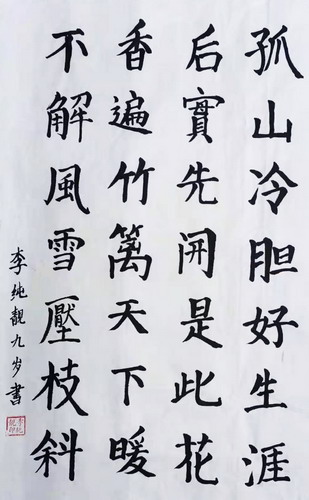 孤山冷胆好生涯
后實先開是此花
香遍竹篱天下暖
不解風雪壓枝斜
李純靚九岁書